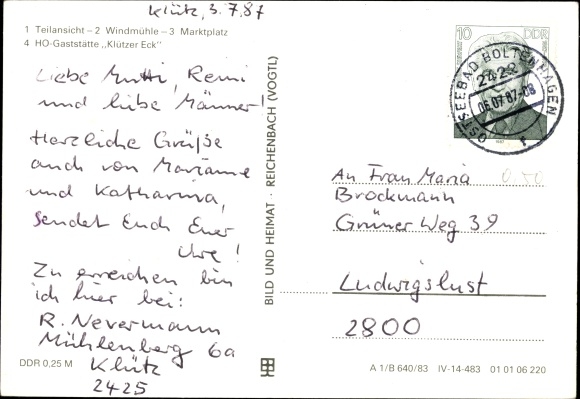 Klütz, 3.7.87
1 Teilansicht – 2 Windmühle – 3 Marktplatz
4 HO-Gaststätte „Klützer Eck"
Liebe Mutti, Remi
und liebe Männer!
Herzliche Grüße
auch von Marianne
und Katharina,
sendet Euch Euer
Uwe!
Zu erreichen bin
ich hier bei:
R. Nevermann
Mühlenberg 6a
Klütz
2425
DDR 0,25 M
BILD UND HEIMAT · REICHENBACH (VOGTL)
10 DDR
OSTSEEBAD BOLTENHAGEN
2422
06.07.87-08
r
0.50
An Frau Maria
Brockmann
Grüner Weg 39
Ludwigslust
2800
A 1/B 640/83 IV-14-483 01 01 06 220